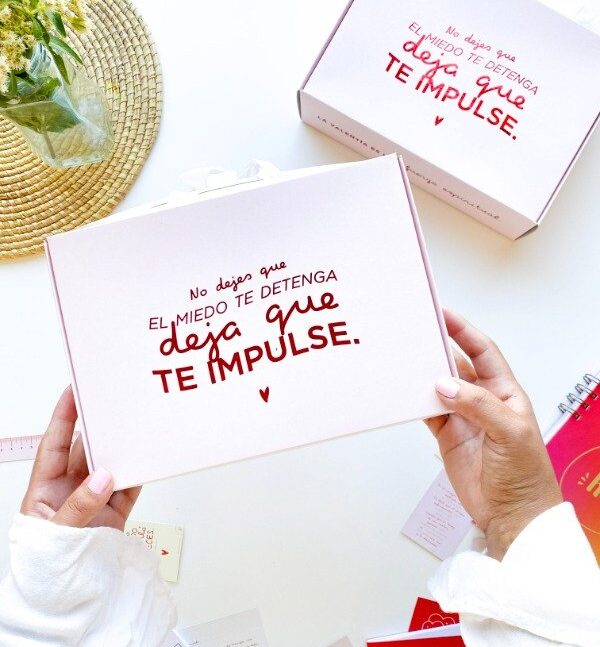 No dejes que
EL MIEDO TE DETENGA
deja que
TE IMPULSE.
LA VALENTÍA ES
espiritual
No dejes que
EL MIEDO TE DETENGA
deja que
TE IMPULSE.